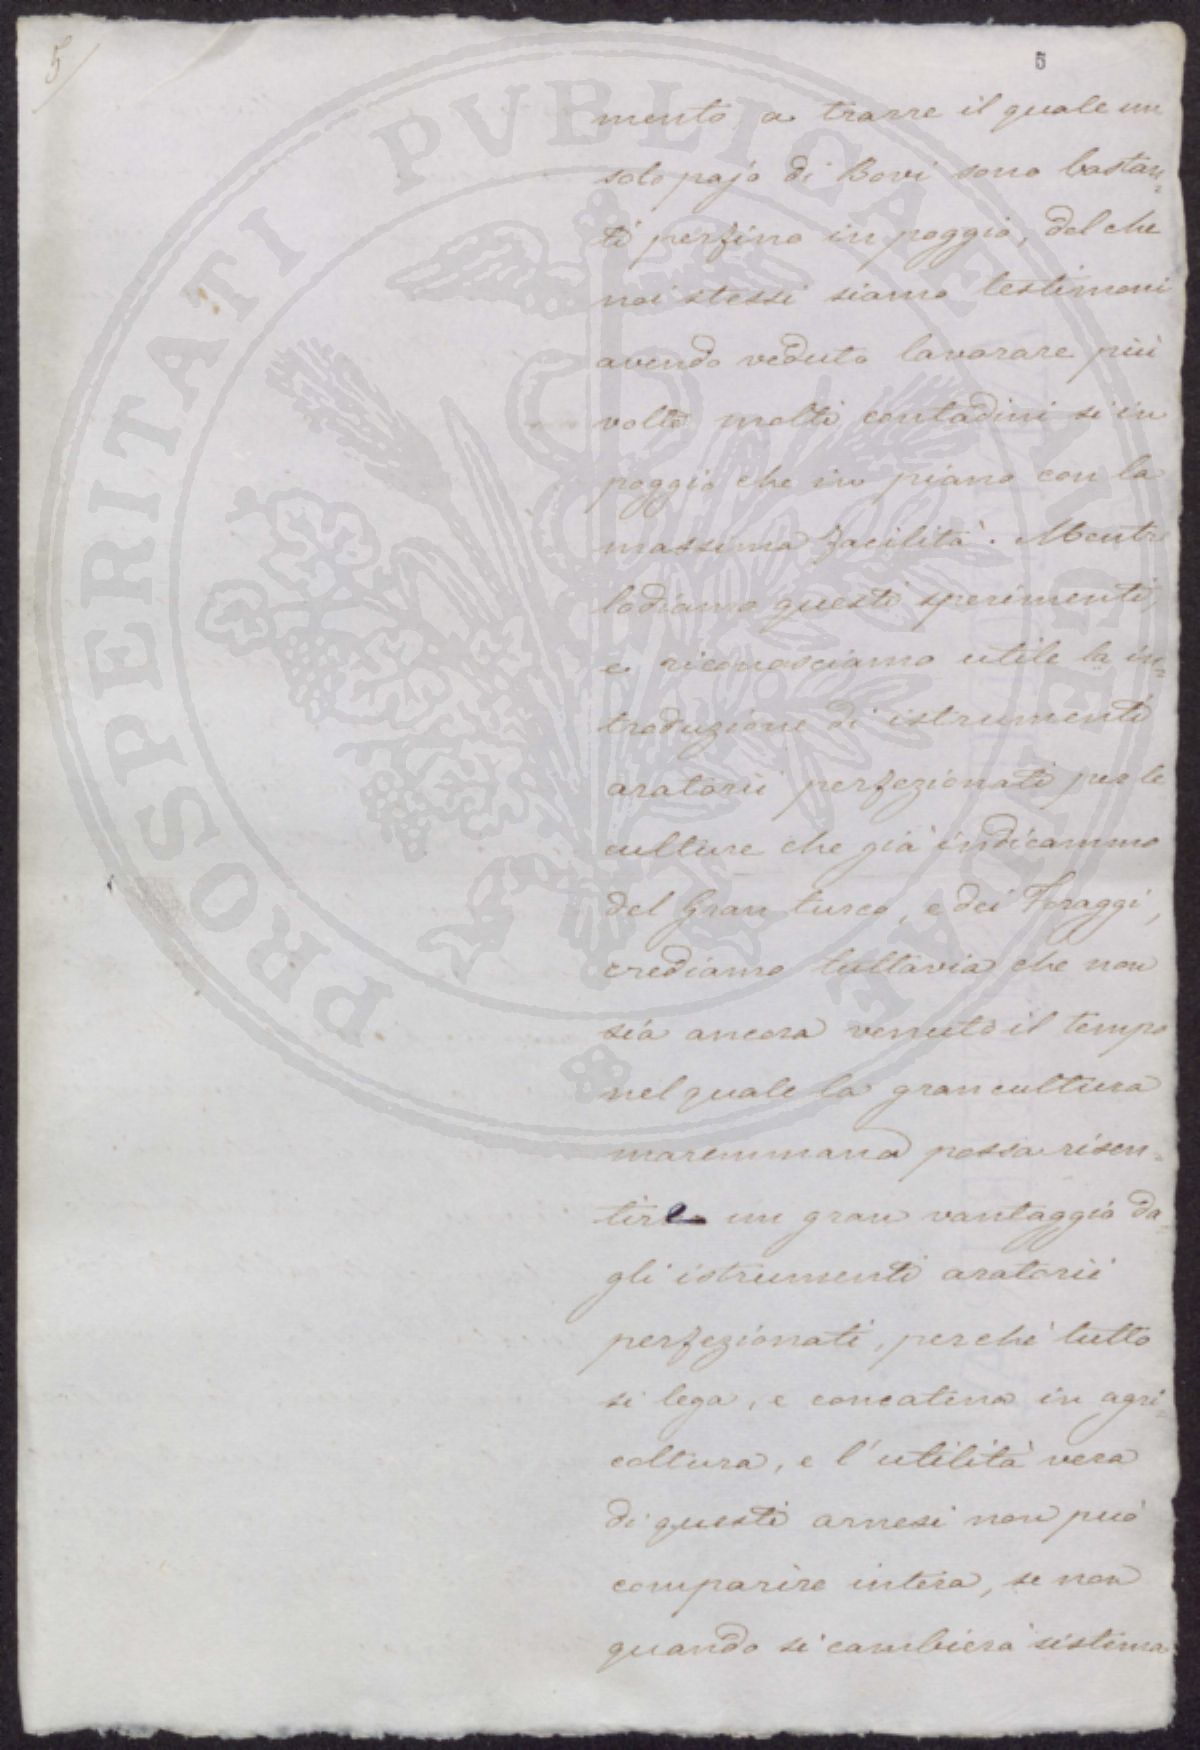 5
5
mento a trarre il quale un
solo pajo di Bovi sono bastan=
ti perfino in poggio, del che
noi stessi siamo testimoni
avendo veduto lavorare più
volte molti contadini sì in
poggio che in piano con la
massima facilità. Mentre
lodiamo questi sperimenti,
e riconosciamo utile la in=
troduzione di istrumenti
aratorii perfezionati per le
culture che già indicammo
del Gran turco, e dei Foraggi,
crediamo tuttavia che non
sia ancora venuto il tempo
nel quale la gran cultura
maremmana possa risen=
tire un gran vantaggio da=
gli istrumenti aratorii
perfezionati, perchè tutto
si lega, e concatena in agri=
coltura, e l'utilità vera
di questi arnesi non può
comparire intera, se non
quando si cambierà sistema
PROSPERITATI PVBLICAE AVGENDAE